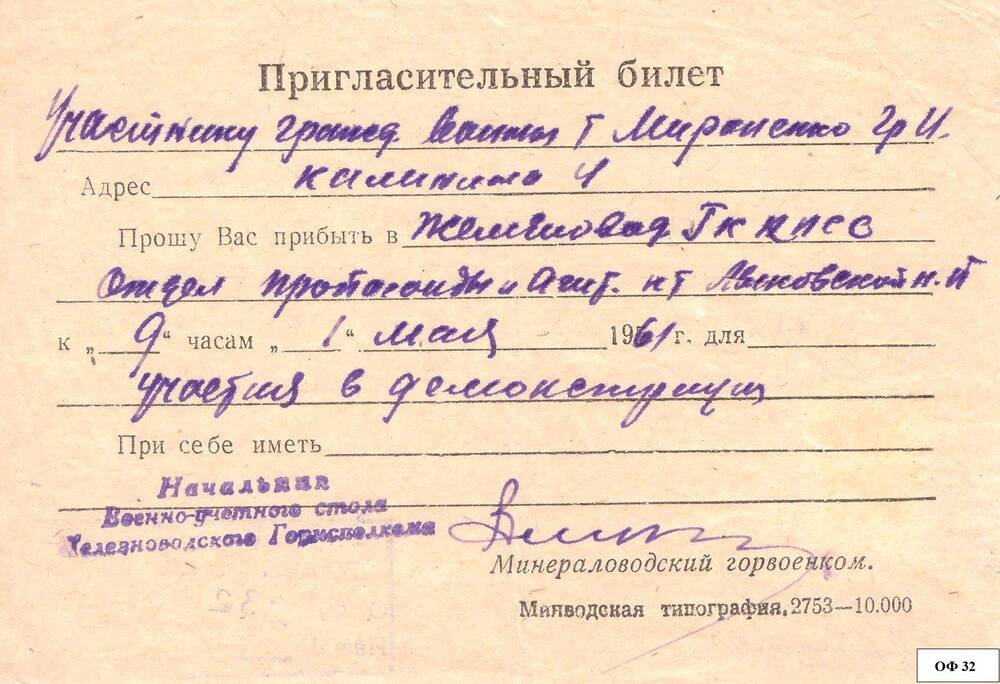 Пригласительный билет
Участнику гражд. Войны т Мироненко Гр И.
Адрес Калинина 4
Прошу Вас прибыть в Железновод ГК КПСС
Отдел пропоганды и агит. к т
к „ 9 “ часам „ 1 “ мая 1961 г. для
участия в демонстрации
При себе иметь
Начальник
Военно-учетного стола
Железноводского Горисполкома
Минераловодский горвоенком.
Минводская типография. 2753—10.000
ОФ 32